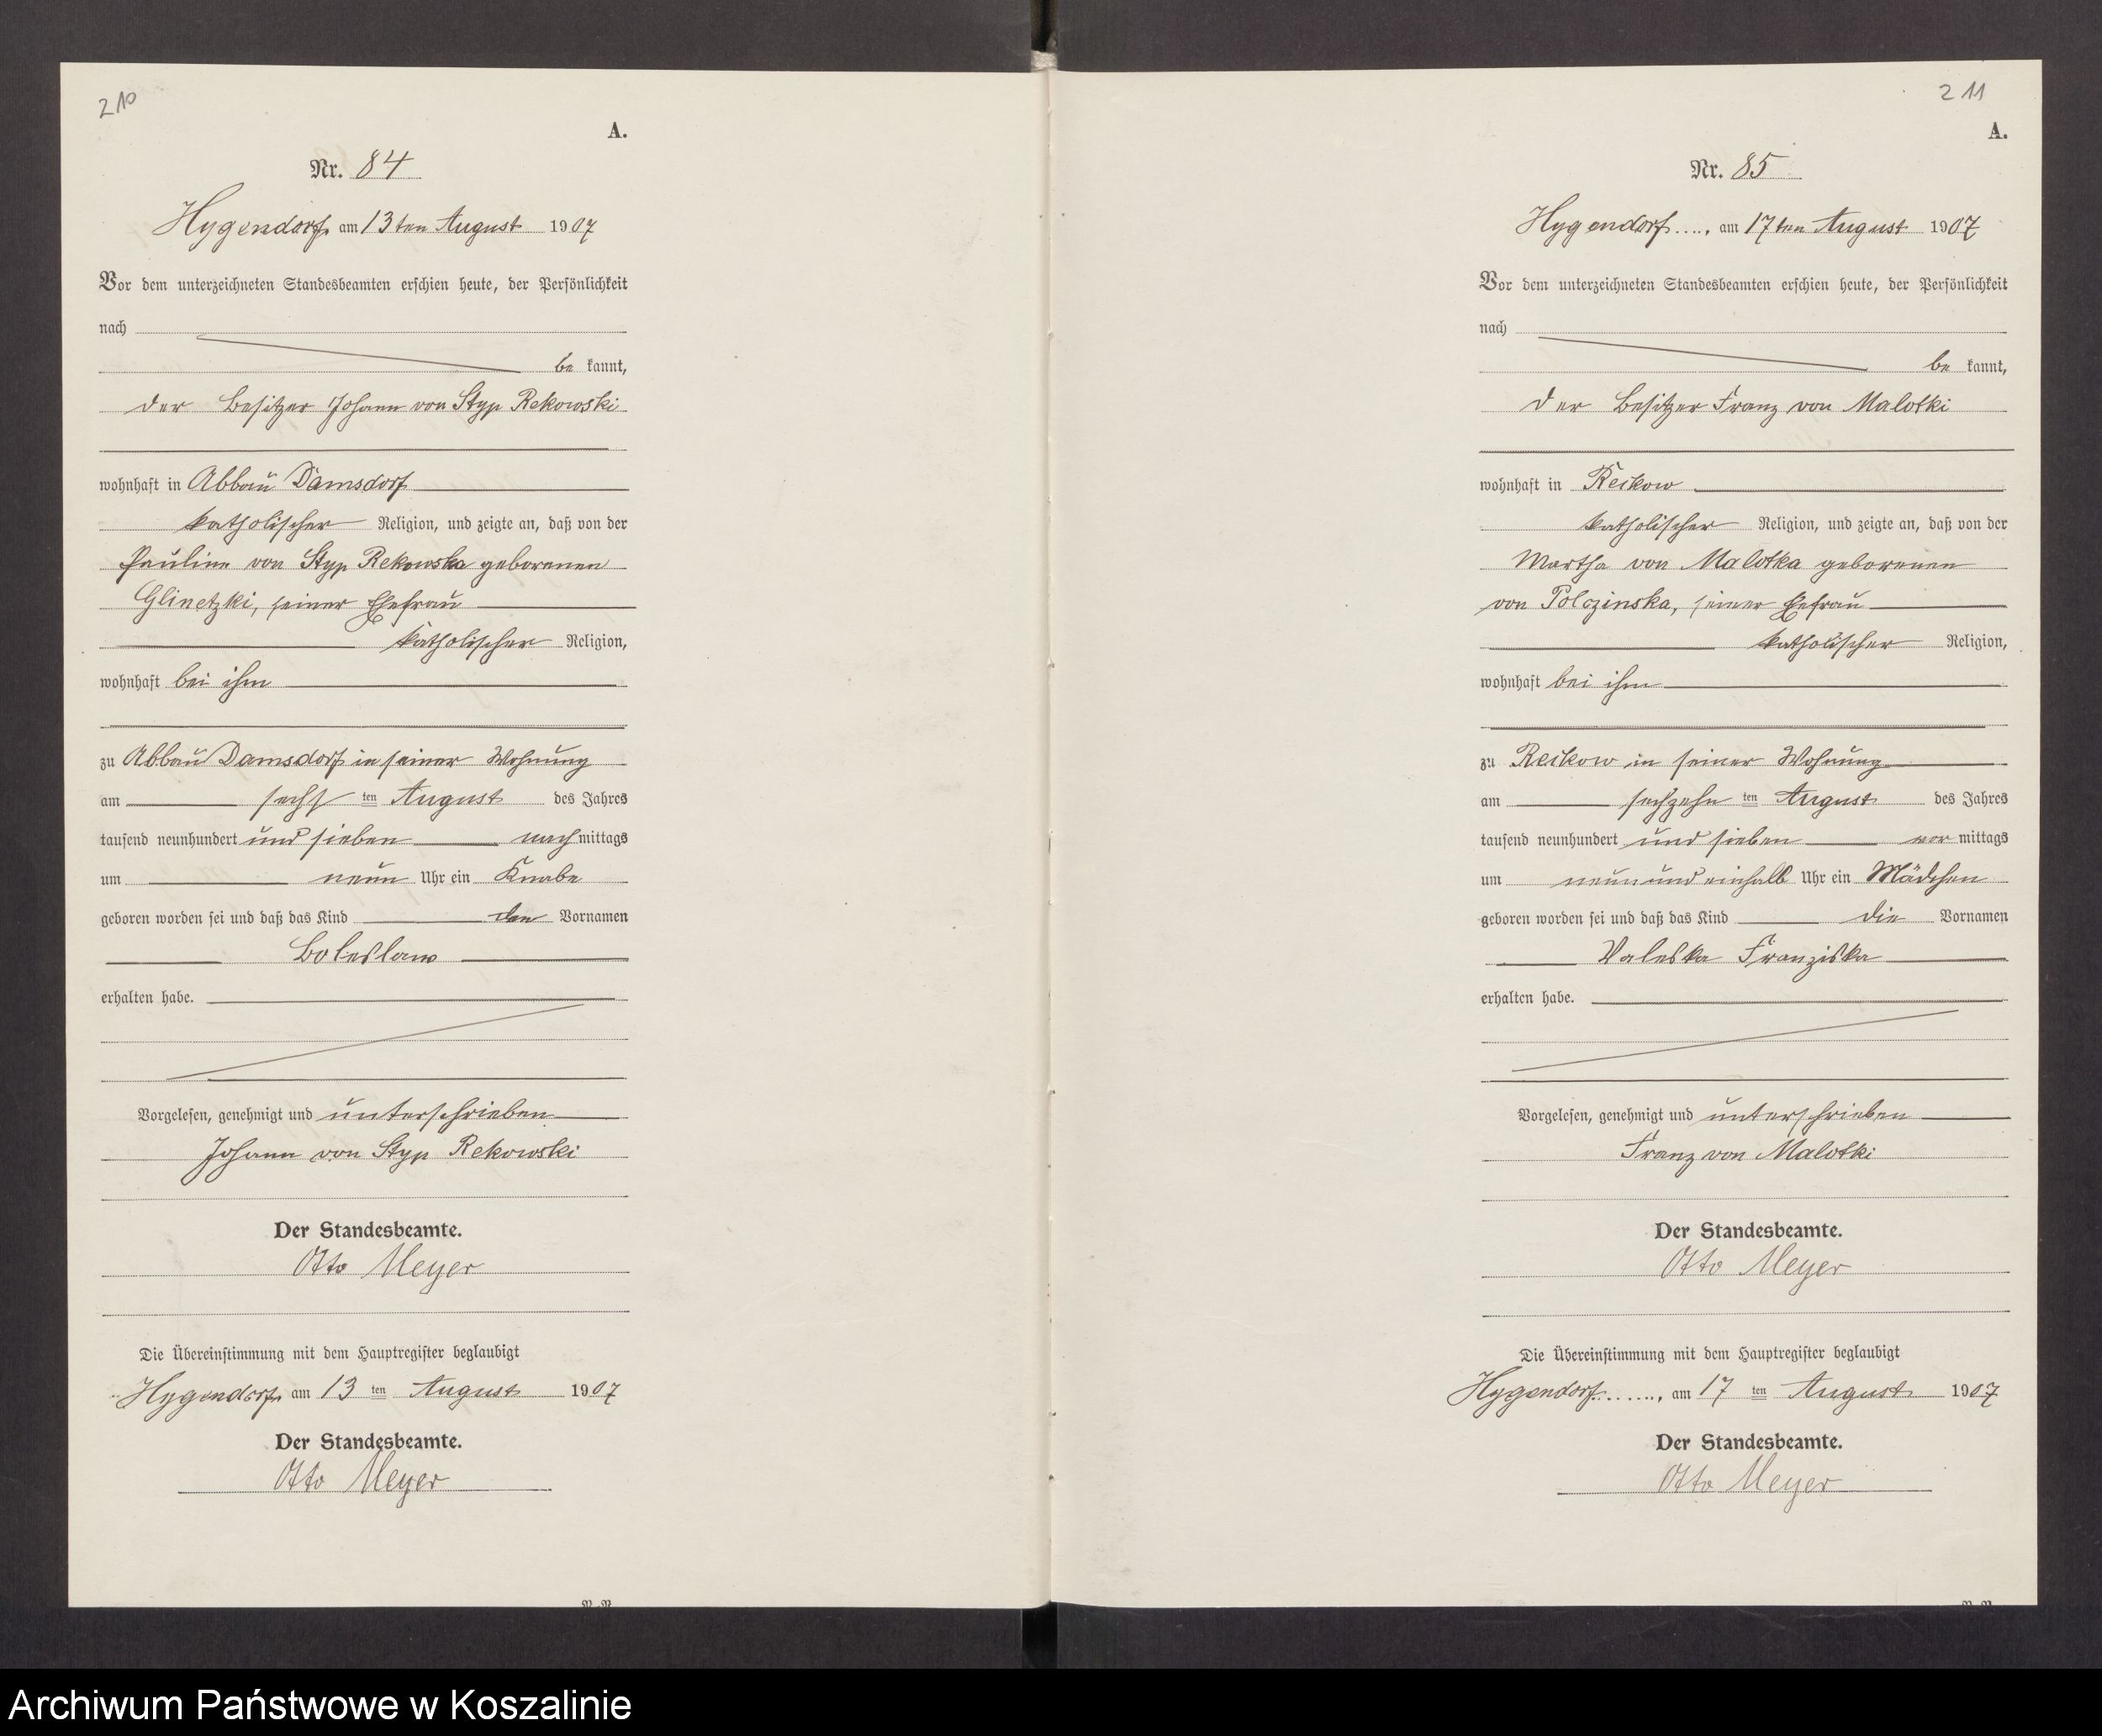 210
A.
Nr. 84
Hygendorf am 13ten August 1907
Vor dem unterzeichneten Standesbeamten erschien heute, der Persönlichkeit
nach
be kannt,
der Besitzer Johann von Styp Rekowski
wohnhaft in Abbau Damsdorf
katholischer Religion, und zeigte an, daß von der
Pauline von Styp Rekowska geborenen
Glinetzki, seiner Ehefrau
katholischer Religion,
wohnhaft bei ihm
zu Abbau Damsdorf in seiner Wohnung
am sechs ten August des Jahres
tausend neunhundert und sieben nach mittags
um neun Uhr ein Knabe
geboren worden sei und daß das Kind den Vornamen
Boleslaw
erhalten habe.
Vorgelesen, genehmigt und unterschrieben
Johann von Styp Rekowski
Der Standesbeamte.
Otto Meyer
Die Übereinstimmung mit dem Hauptregister beglaubigt
Hygendorf am 13 ten August 1907
Der Standesbeamte.
Otto Meyer
211
A.
Nr. 85
Hygendorf...., am 17ten August 1907
Vor dem unterzeichneten Standesbeamten erschien heute, der Persönlichkeit
nach
be kannt,
der Besitzer Franz von Malotki
wohnhaft in Reckow
katholischer Religion, und zeigte an, daß von der
Martha von Malotka geborenen
von Polczinska, seiner Ehefrau
katholischer Religion,
wohnhaft bei ihm
zu Reckow in seiner Wohnung
am sechzehn ten August des Jahres
tausend neunhundert und sieben vor mittags
um neun und einhalb Uhr ein Mädchen
geboren worden sei und daß das Kind die Vornamen
Valeska Franziska
erhalten habe.
Vorgelesen, genehmigt und unterschrieben
Franz von Malotki
Der Standesbeamte.
Otto Meyer
Die Übereinstimmung mit dem Hauptregister beglaubigt
Hygendorf......., am 17 ten August 1907
Der Standesbeamte.
Otto Meyer
Archiwum Państwowe w Koszalinie